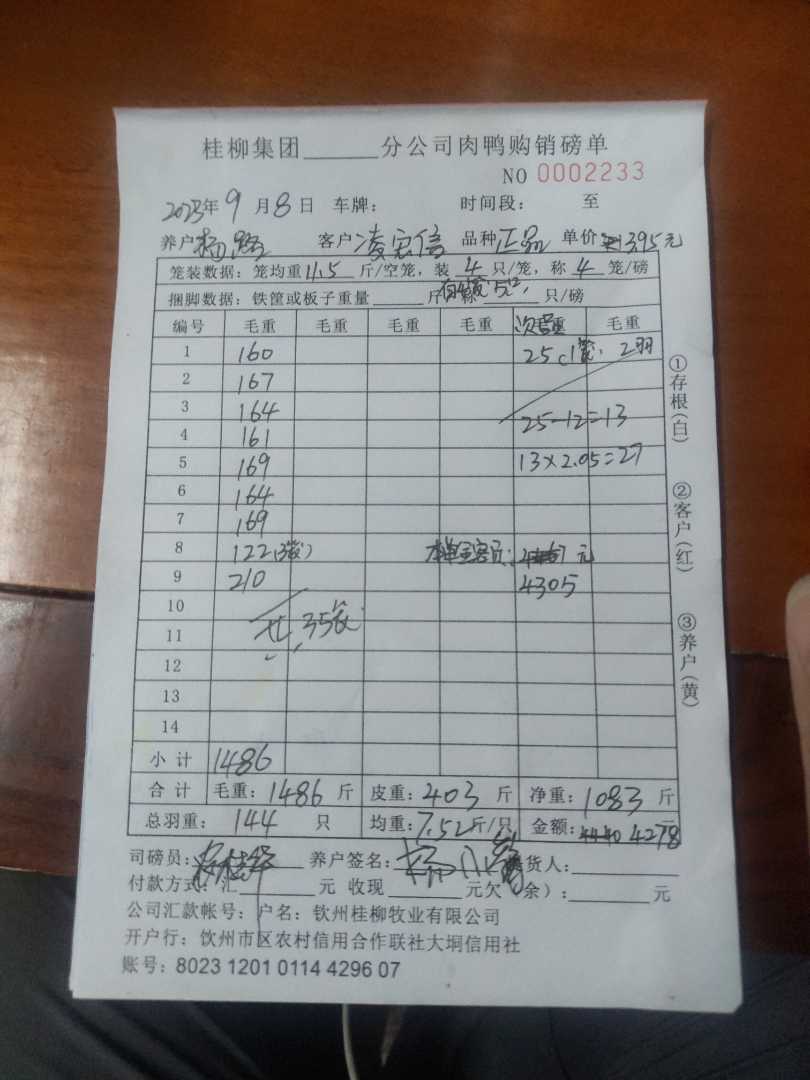 桂柳集团______分公司肉鸭购销磅单
NO 0002233
2023年9月8日 车牌： 时间段： 至
养户 杨 客户 凌宏信 品种 正品 单价 3.95元
笼装数据：笼均重11.5斤/空笼，装4只/笼，称4笼/磅
捆脚数据：铁筐或板子重量____斤 只/磅
编号 毛重 毛重 毛重 毛重 次 重 毛重
1 160 25 (1笼) 2羽
2 167
3 164 25-12=13
4 161
5 169 13×2.05=27
6 164
7 169
8 122(3笼) 本单 元
9 210 4305
10
11 共 35笼
12
13
14
小计 1486
合计 毛重：1486斤 皮重：403斤 净重：1083斤
总羽重：144只 均重：7.52斤/只 金额：4278元
司磅员： 养户签名：杨 货人：
付款方式：汇____元 收现____元欠（余）：____元
公司汇款帐号：户名：钦州桂柳牧业有限公司
开户行：饮州市区农村信用合作联社大垌信用社
账号：8023 1201 0114 4296 07
①存根(白)
②客户(红)
③养户(黄)